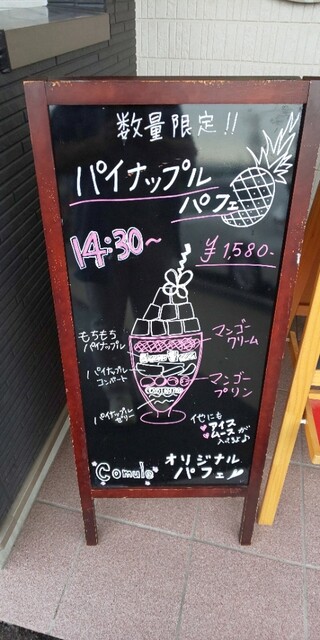 数量限定!!
パイナップル
パフェ
14:30~
¥1,580-
もちもち
パイナップル
マンゴー
クリーム
パイナップル
コンポート
マンゴー
プリン
パイナップル
ゼリー
他にも
♥アイス
♥ムースが
入ってるよ♪
Comulo
オリジナル
パフェ